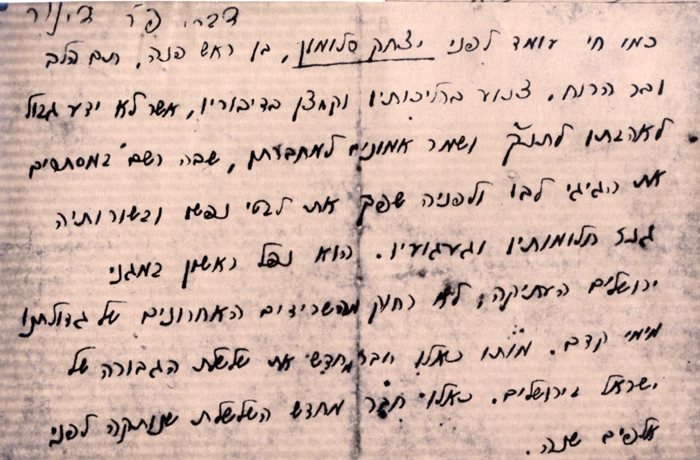 דברי פר' דינור
כמי חי עומד לפני יצחק סלומון, בן ראש פנה, תם הלב
ובר הרוח. צנוע בהליכותיו וקמצן בדיבוריו, אשר לא ידע גבול
לאהבתו לתנ"ך ושמר אמונים למחברתו, שבה רשם במסתרים
את הגיגי לבו ולפניה שפך את לבטי נפשו ובשורותיה
גנז חלומותיו וגעגועיו. הוא נפל ראשון במגני
ירושלים העתיקה, לא רחוק מהשרידים האחרונים של גדולתנו
מימי קדם. מותו כאלו חבר מחדש את שלשלת הגבורה של
ישראל בירושלים. כאלו חבר מחדש השלשלת שנותקה לפני
אלפים שנה.